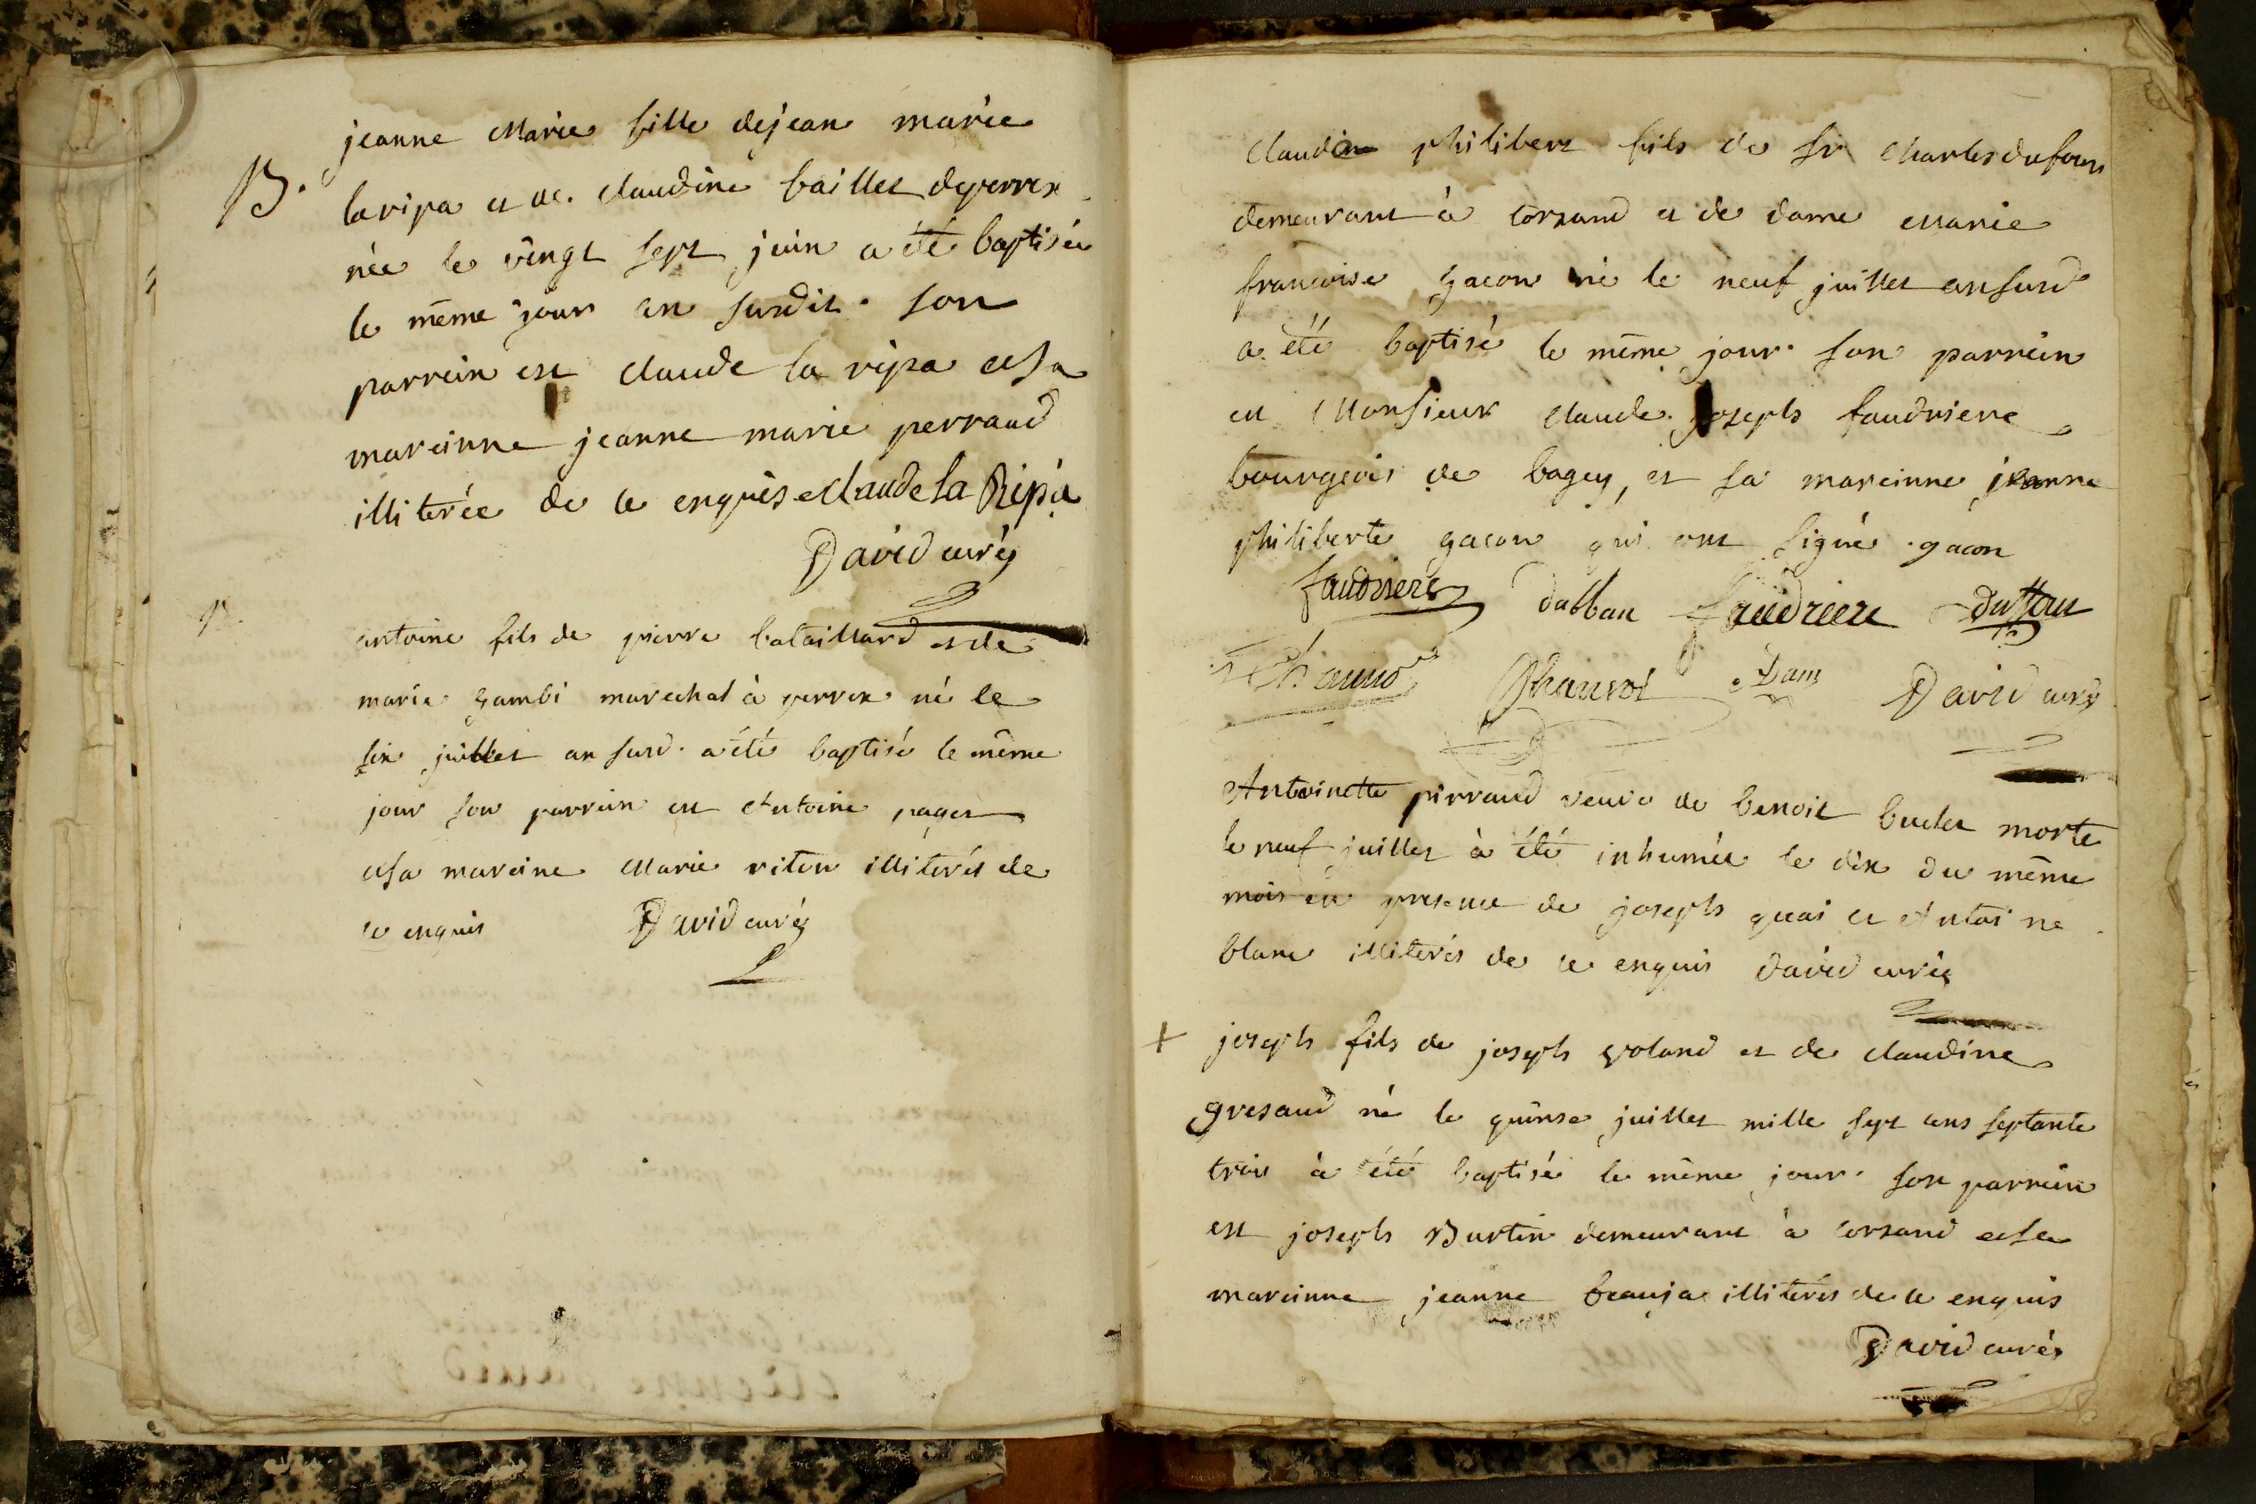 B.
jeanne Marie fille de jean marie
laripa et de claudine baillet de perrex
née le vingt sept juin a été baptisée
le même jour an susdit. son
parrein est claude la ripa et sa
mareinne jeanne marie perraud
illiterée de ce enquise claude la Ripa
David curé
B.
antoine fils de pierre bataillard et de
marie gambi marechal à perrex né le
six juillet an susd. a été baptisé le même
jour son parrein est Antoine paget
et sa mareine Marie riton illiterés de
ce enquis David curé
claudine philibert fils de sr charles dufour
demeurant à corsand et de dame Marie
francoise gacon né le neuf juillet an susd
a été baptisé le même jour. son parrein
est Monsieur claude joseph faudriere
bourgeois de bagey, et sa mareinne jeanne
philiberte gacon qui ont signé. gacon
faudriere dalban faudriere
David curé
Antoinette pirraud veuve de benoit buclet morte
le neuf juillet à été inhumée le dix du même
mois en presence de joseph guai et Antoine
blanc illiterés de ce enquis david curé
+ joseph fils de joseph goland et de claudine
gresaud né le quinse juillet mille sept cens septante
trois à été baptisé le même jour. son parrein
est joseph Burtin demeurant à corsand et sa
mareinne jeanne beauja illiterés de ce enquis
David curé